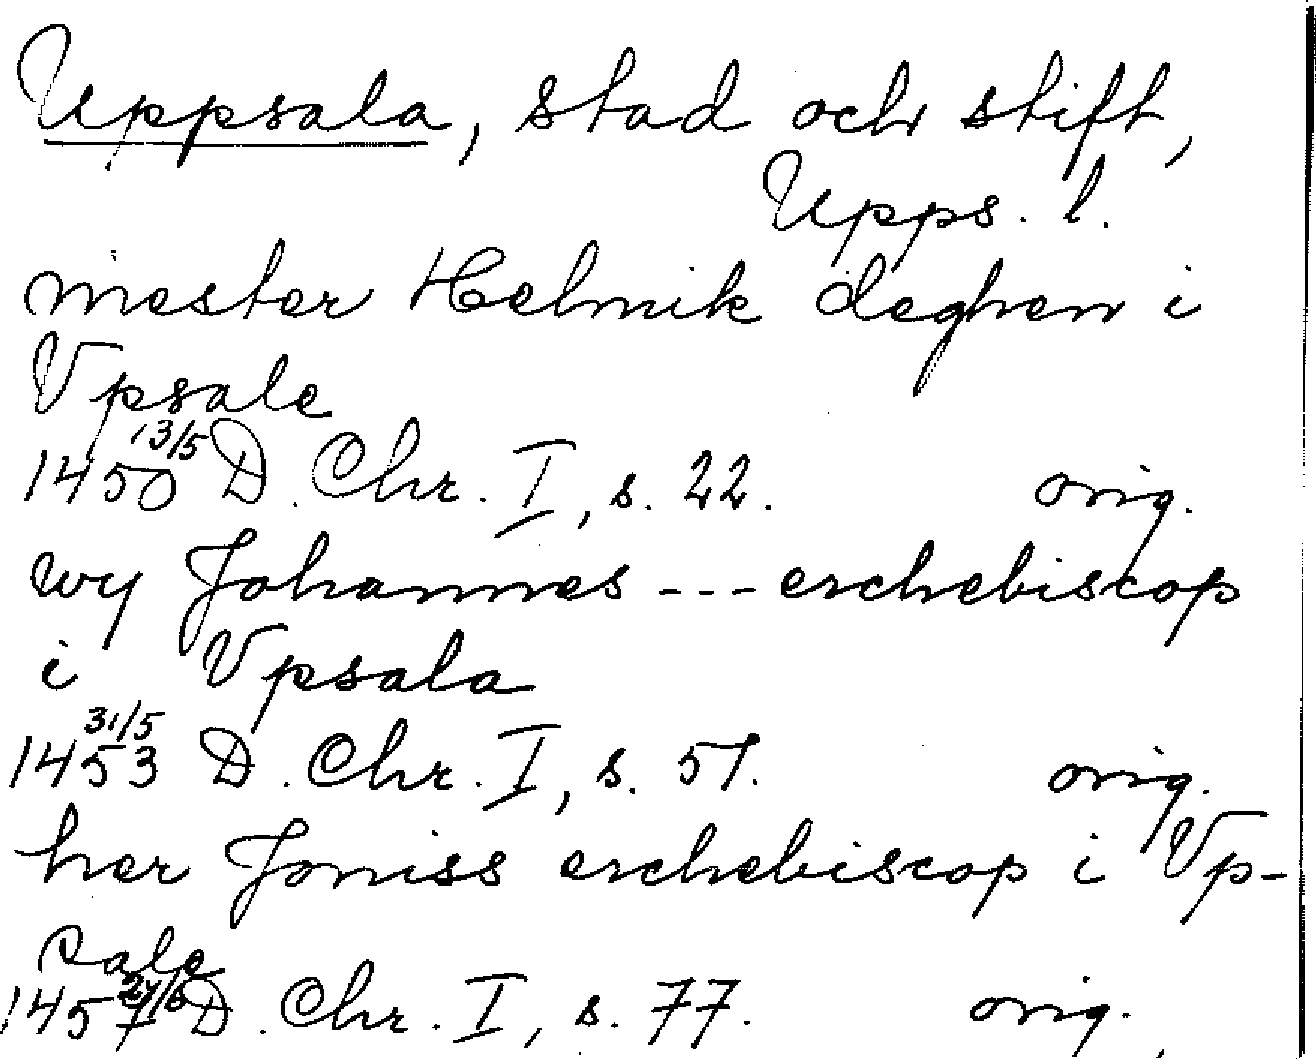 Uppsala, stad och stift,
Upps. l.
mester Helmik deghen i
Vpsale
1450 13/5 D. Chr. I, s. 22. orig.
wy Johannes --- erchebiscop
i Vpsala
1453 31/5 D. Chr. I, s. 51. orig.
her Joniss erchebiscop i Vp-
sale
1457 D. Chr. I, s. 77. orig.